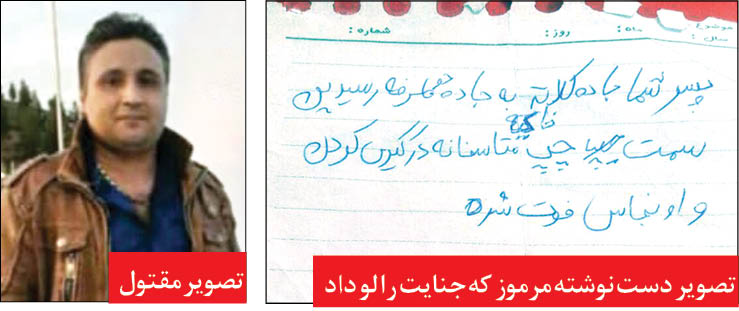 موضوع:
سال: ماه: روز: شماره:
پسر شما جاده کلات به جاده رسیدین
سمت چپ متاسفانه درگیری کردن
و اونجاس فوت شده
تصویر مقتول
تصویر دست نوشته مرموز که جنایت را لو داد